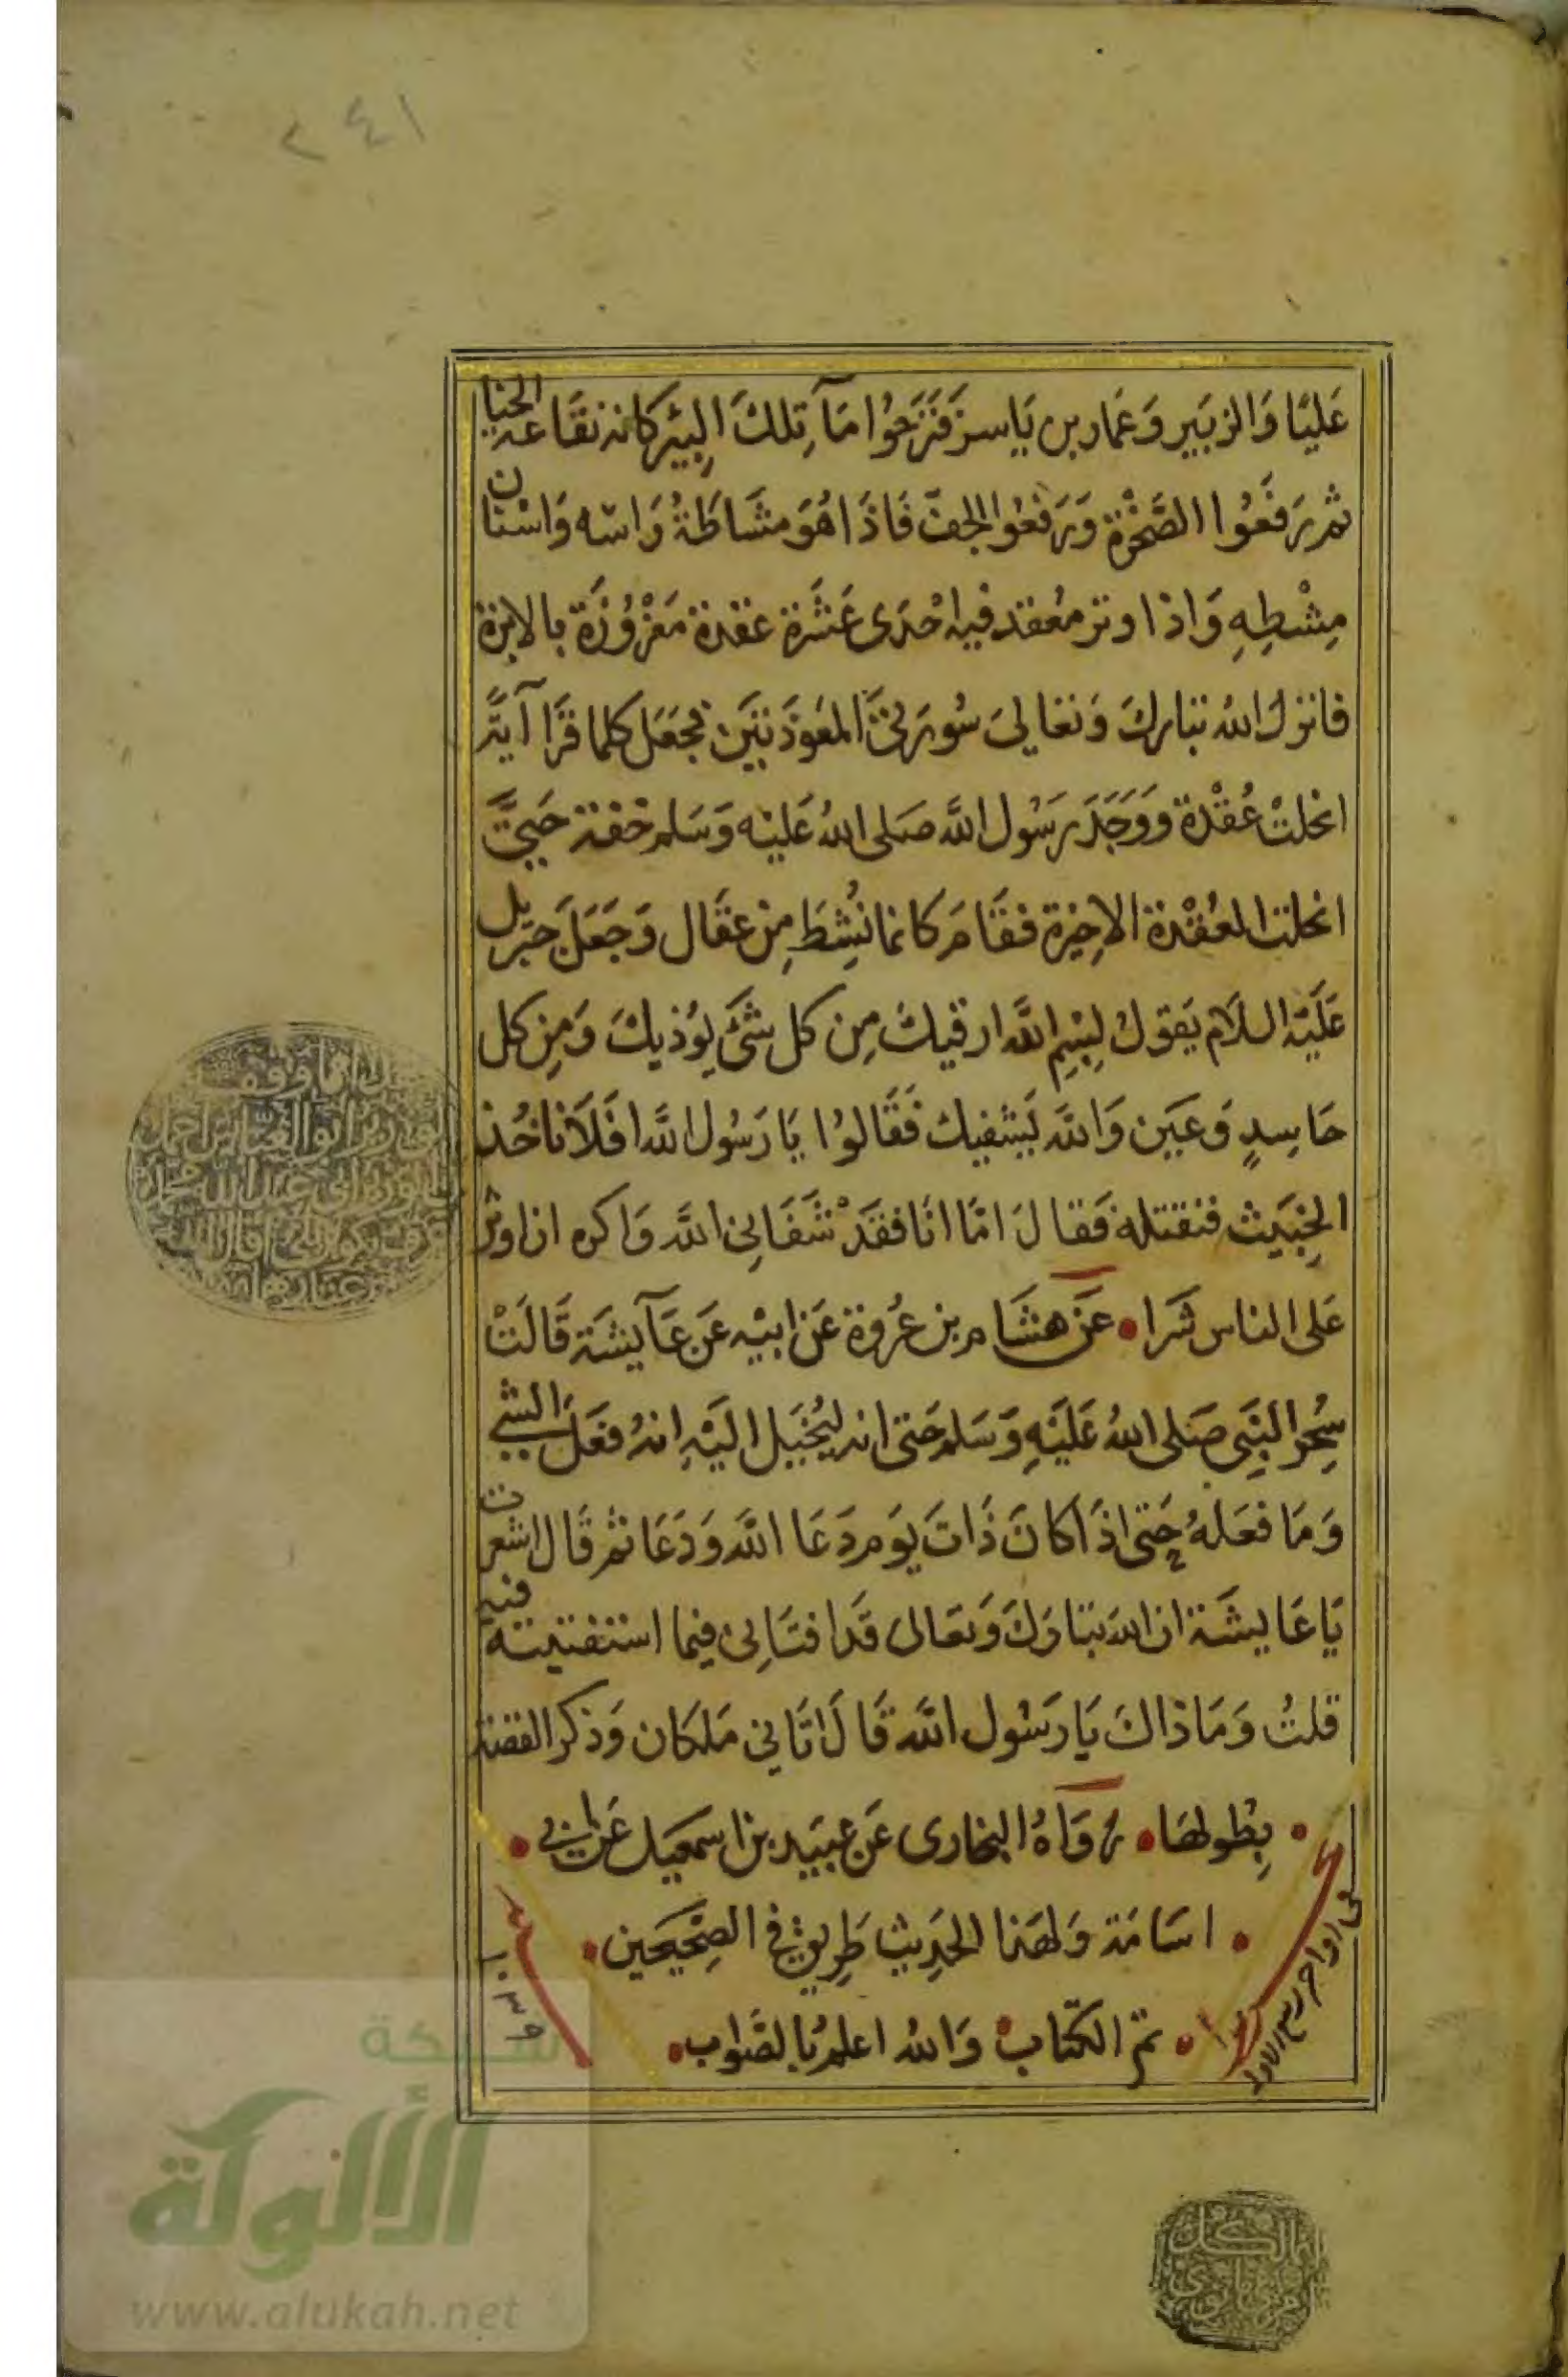 ٢٤١
عَليًا وَالزبَير وَعَمار بن يَاسر فَنَزَحُوا مَآء تِلكَ البِيْر كانه نقَاعة الحنا
ثم رَفعُوا الصَّخْرة وَرَفعُوا الجف فَاذَا هُوَ مشَاطَةُ رَاسه وَاسْنان
مِشْطِهِ وَاذا وتر مُعقد فيه احْدَى عَشَرة عقدة مَغْرُوُزَة بالابرة
فانزل الله تبارك وَتعالىَ سُورَتىَ المعَوذَتَيَن فجَعَل كلما قرَا آيَة
انحلتْ عُقْدة وَوَجَدَ رَسُول الله صَلى اللهُ عَليْه وَسَلم خفة حَتىَّ
انحلت العُقْدة الاخِيْرة فقَام كانما نُشِطَ مِنْ عقَال وَجَعَلَ جبْريل
عَلَيْه السلاَم يَقول بِسْمِ الله ارقيكَ مِن كل شَىْ يوُذيكَ وَمِن كل
حَاسِدٍ وَعَيَن وَالله يَشفيك فَقَالوُا يَا رَسُول الله افَلاَ ناخُذ
الخِبَيث فنقتله فَقال امَّا انَا فقَدْ شَفَانِى الله وَاكره ان اوثر
عَلى الناس شَرا • عَن هشَام بن عُروة عَن ابيْه عَن عَآيشَة قَالَتْ
سُحِر النَبِى صَلى اللهُ عَليَهِ وَسَلم حَتى انه ليُخَيَل اليَهِ انهُ فعَلَ الشى
وَمَا فعَلهُ حَتى اذَا كانَ ذَاتَ يوَم دَعَا الله وَدَعَا ثم قَال اشعرت
يَا عَايشَة ان الله تبَاركَ وَتعَالى قَد افتَانِى فيمَا استفتيته فيه
قلتُ وَمَا ذاكَ يَا رَسُول الله قَالَ اتَانِي مَلكَان وَذكر القصة
• بِطُولهَا • رَوَاهُ البخارى عَن عبيَد بن اسمعيَل عَن ابى •
• اسَامَة وَلهَذا الحَدِيث طَرِيق في الصِحْيحَين •
• تم الكتَاب وَالله اعلم بُالصَوَاب •
في اواخر ربيع الاول
١٠٣٩
شبكة
الألوكة
www.alukah.net